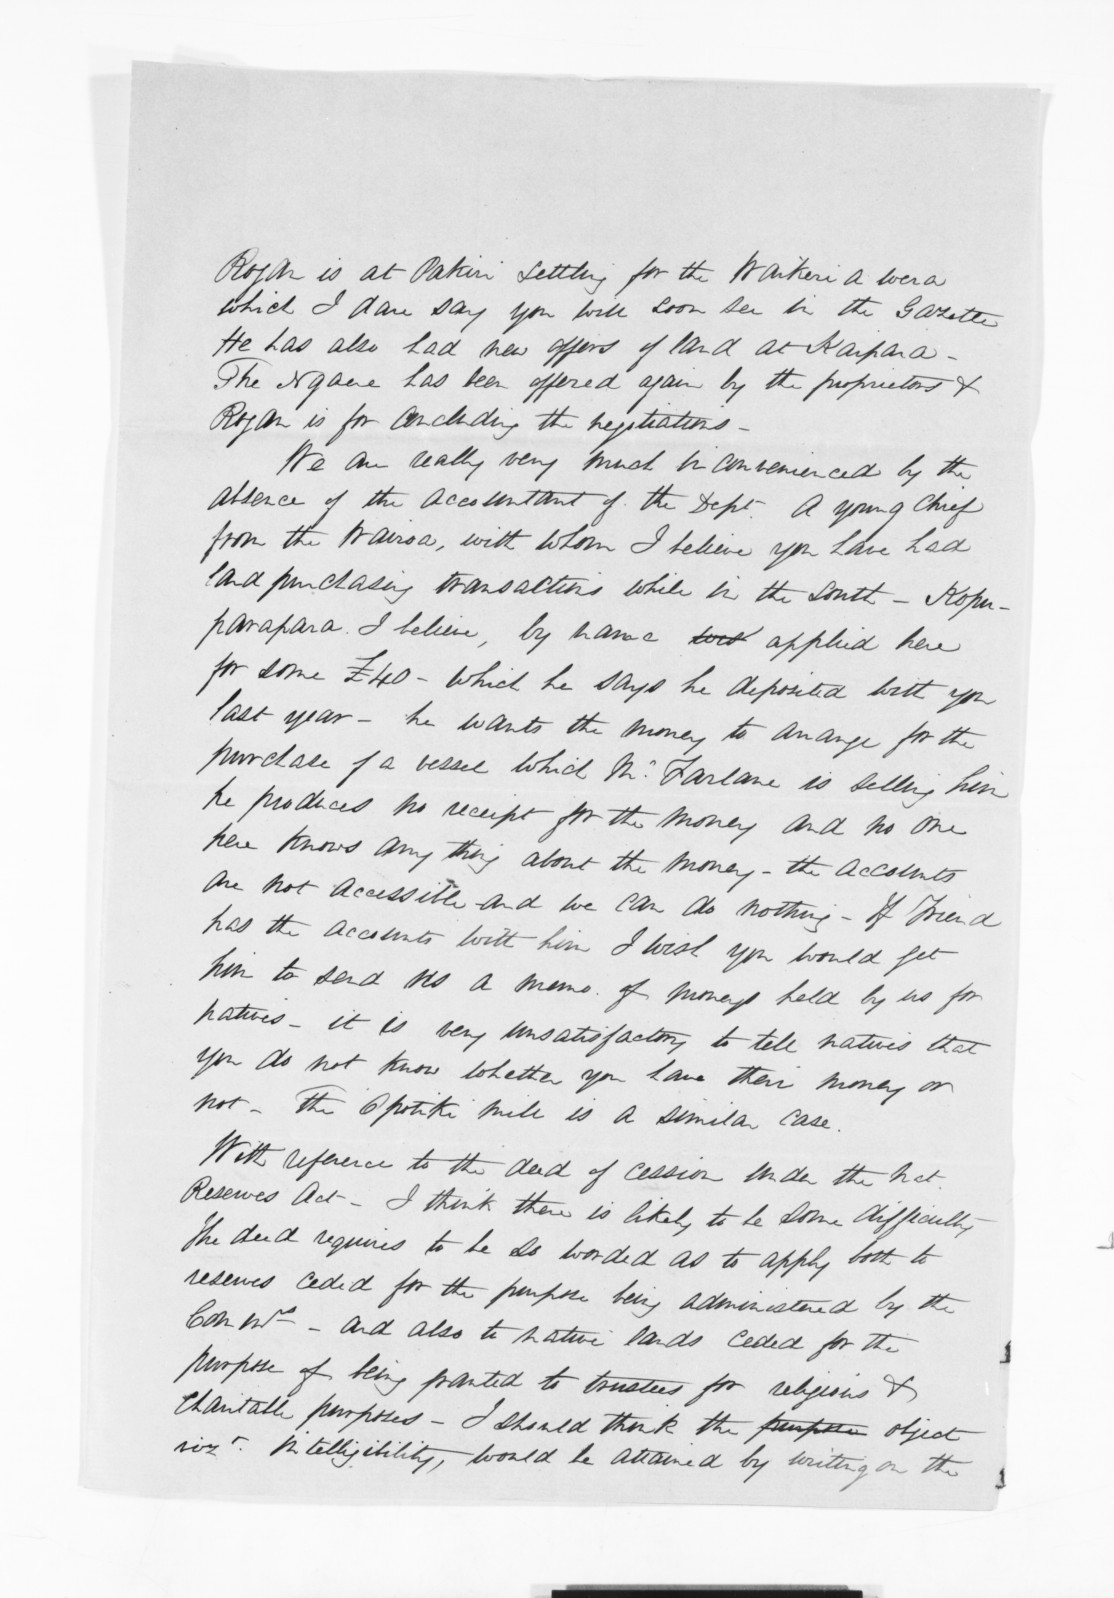 Rogan is at Pakiri settling for the Waikeri a wera
which I dare say you will soon see in the Gazette
He has also had new offers of land at Kaipara -
The Ngaere has been offered again by the proprietors &
Rogan is for concluding the negotiations -
We are really very much inconvenienced by the
absence of the accountant of the Dept. A young chief
from the Wairoa, with whom I believe you have had
land purchasing transactions while in the South - Kopu-
parapara. I believe, by name applied here
for some £40 - which he says he deposited with you
last year - he wants the money to arrange for the
purchase of a vessel which Mc Farlane is selling him
he produces no receipt for the money and no one
here knows any thing about the money - the accounts
are not accessible and we can do nothing - If Friend
has the accounts with him I wish you would get
him to send us a memo. of moneys held by us for
natives - it is very unsatisfactory to tell natives that
you do not know whether you have their money or
not - The Opotiki mill is a similar case.
With reference to the deed of cession under the Nat.
Reserves Act - I think there is likely to be some difficulty
The deed requires to be so worded as to apply both to
reserves ceded for the purpose being administered by the
Commrs - and also to native lands ceded for the
purpose of being granted to trustees for religious &
charitable purposes - I should think the purpose object
vizt. intelligibility, would be attained by writing on the